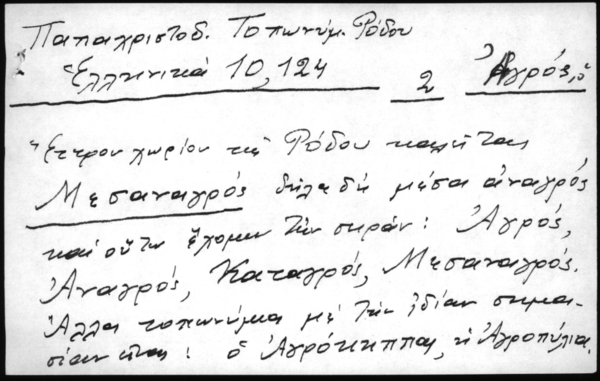 Παπαχριστοδ. Τοπωνύμ. Ρόδου
Ἑλληνικά 10,124 2 Ἀγρός, ὁ
Ἕτερον χωρίον τῆς Ρόδου καλεῖται
Μεσαναγρός δηλαδή μέσα ἀναγρός
καί οὕτω ἔχομεν τήν σειράν: Ἀγρός,
Ἀναγρός, Καταγρός, Μεσαναγρός.
Ἄλλα τοπωνύμια μέ τήν ἰδίαν σημα-
σίαν εἶναι: ὁ Ἀγρόκηππας, ἡ Ἀγροπύλια.